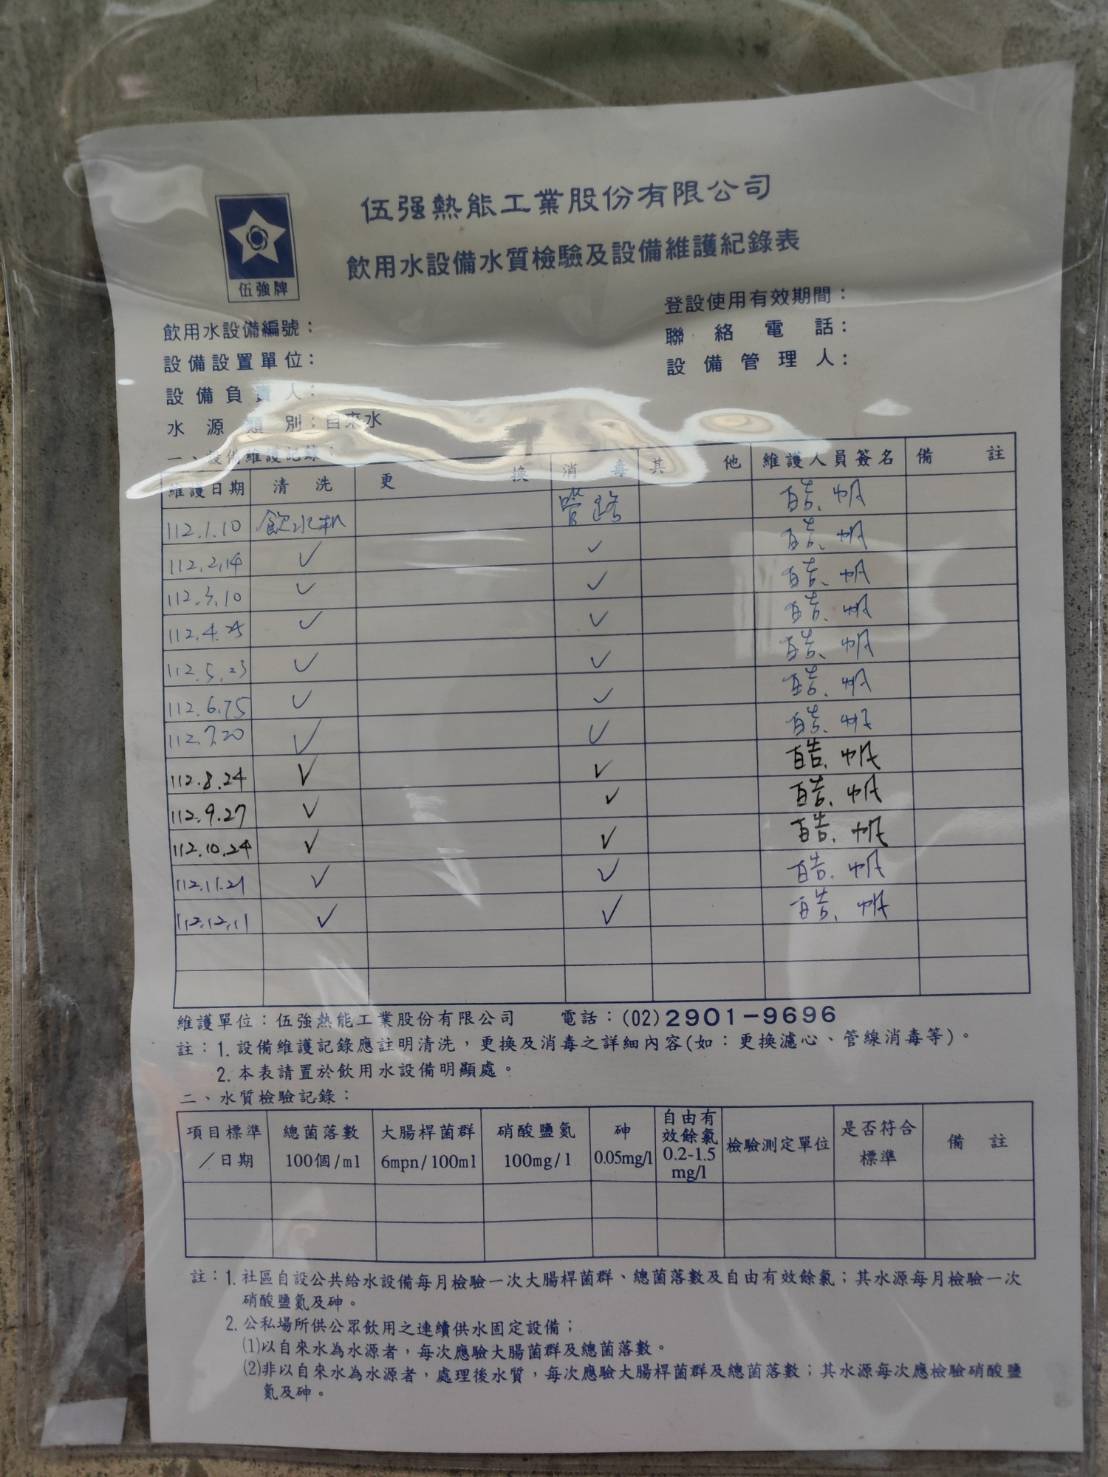 伍強牌
伍强熱能工業股份有限公司
飲用水設備水質檢驗及設備維護紀錄表
飲用水設備編號：
登設使用有效期間：
設備設置單位：
聯絡電話：
設備負責人：
設備管理人：
水源類別：自來水
一、設備維護記錄：
維護日期 清洗 更換 消毒 其他 維護人員簽名 備註
112.1.10 飲水机 管路
112.2.14 ✓ ✓
112.3.10 ✓ ✓
112.4.25 ✓ ✓
112.5.23 ✓ ✓
112.6. ✓ ✓
112.7.20 ✓ ✓
112.8.24 ✓ ✓
112.9.27 ✓ ✓
112.10.24 ✓ ✓
112.11.21 ✓ ✓
112.12.11 ✓ ✓
維護單位：伍強熱能工業股份有限公司 電話：(02)2901-9696
註：1. 設備維護記錄應註明清洗，更換及消毒之詳細內容(如：更換濾心、管線消毒等)。
2. 本表請置於飲用水設備明顯處。
二、水質檢驗記錄：
項目標準／日期 總菌落數 100個/ml 大腸桿菌群 6mpn/100ml 硝酸鹽氮 100mg/l 砷 0.05mg/l 自由有效餘氯 0.2-1.5 mg/l 檢驗測定單位 是否符合標準 備註
註：1. 社區自設公共給水設備每月檢驗一次大腸桿菌群、總菌落數及自由有效餘氯；其水源每月檢驗一次
硝酸鹽氮及砷。
2. 公私場所供公眾飲用之連續供水固定設備；
(1)以自來水為水源者，每次應驗大腸菌群及總菌落數。
(2)非以自來水為水源者，處理後水質，每次應驗大腸桿菌群及總菌落數；其水源每次應檢驗硝酸鹽
氮及砷。